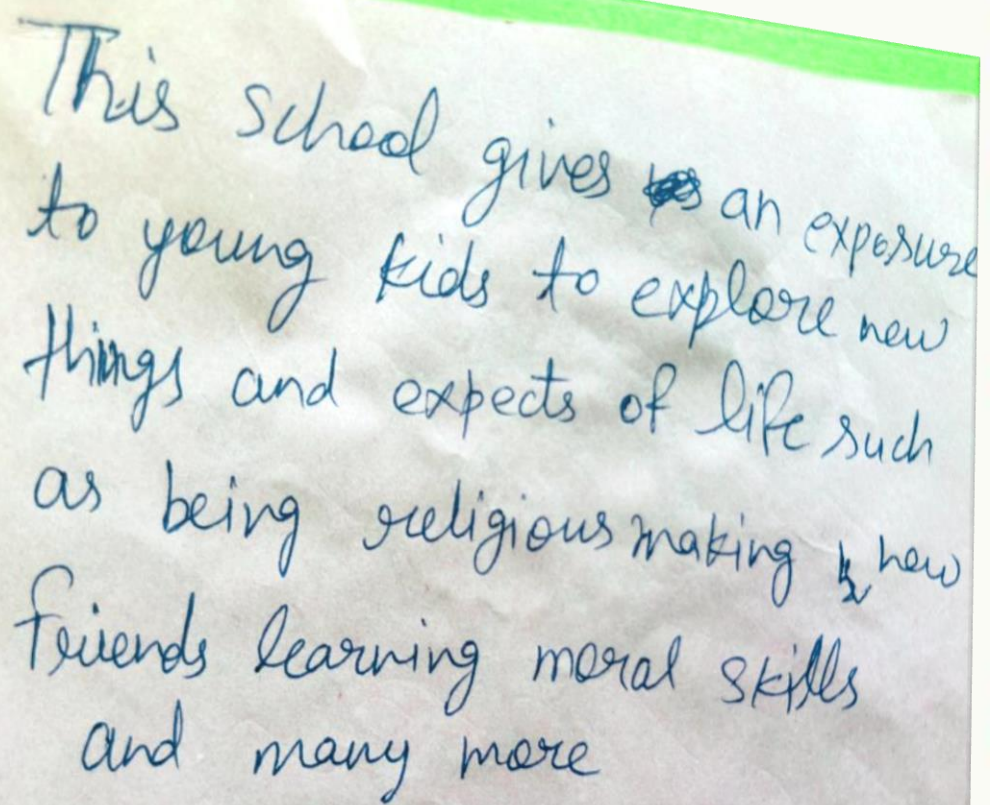 This school gives an exposure
to young kids to explore new
things and expects of life such
as being religious making new
friends learning moral skills
and many more